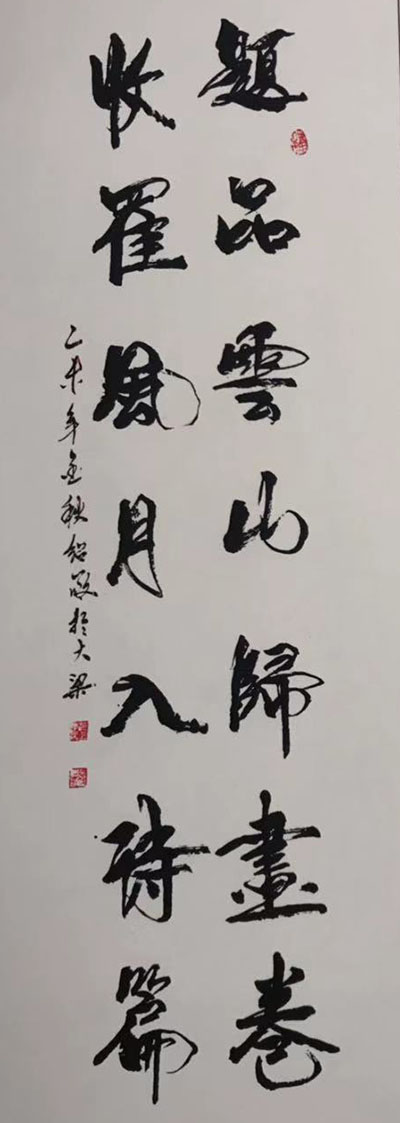 題品雲山歸畫卷
收羅風月入詩篇
乙未年金秋紹敬於大梁